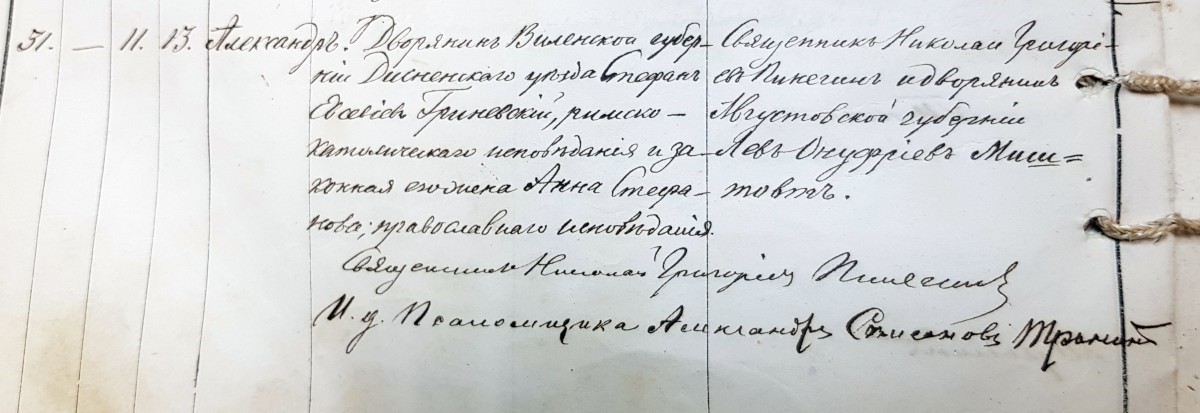 31. — 11. 13. Александръ. Дворянинъ Виленской губер-
ніи Дисненскаго уѣзда Стефанъ
Евсевіевъ Гриневскій, римско-
католическаго исповѣданія и за-
конная его жена Анна Стефа-
нова; православнаго исповѣданія.
Священникъ Николай Григорі-
евъ Пинегинъ и дворянинъ
Августовской губерніи
Левъ Онуфріевъ Миш=
товтъ.
Священникъ Николай Григоріевъ Пинегинъ
И. д. Псаломщика Александръ